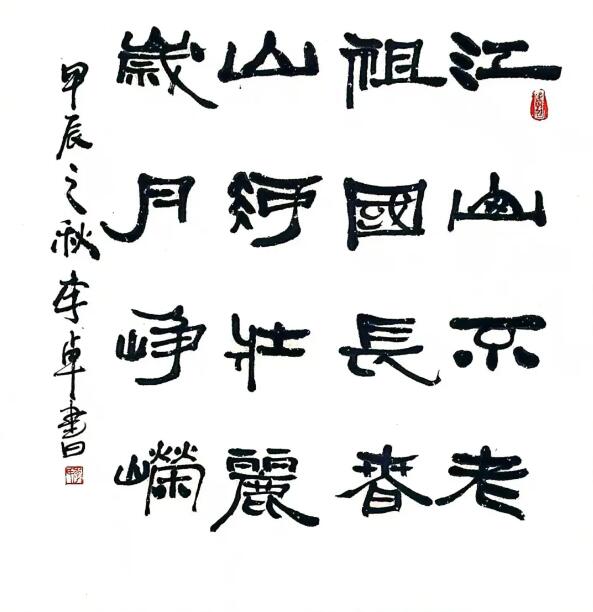 江山不老
祖國長春
山河壯麗
歲月崢嶸
甲辰之秋李卓書